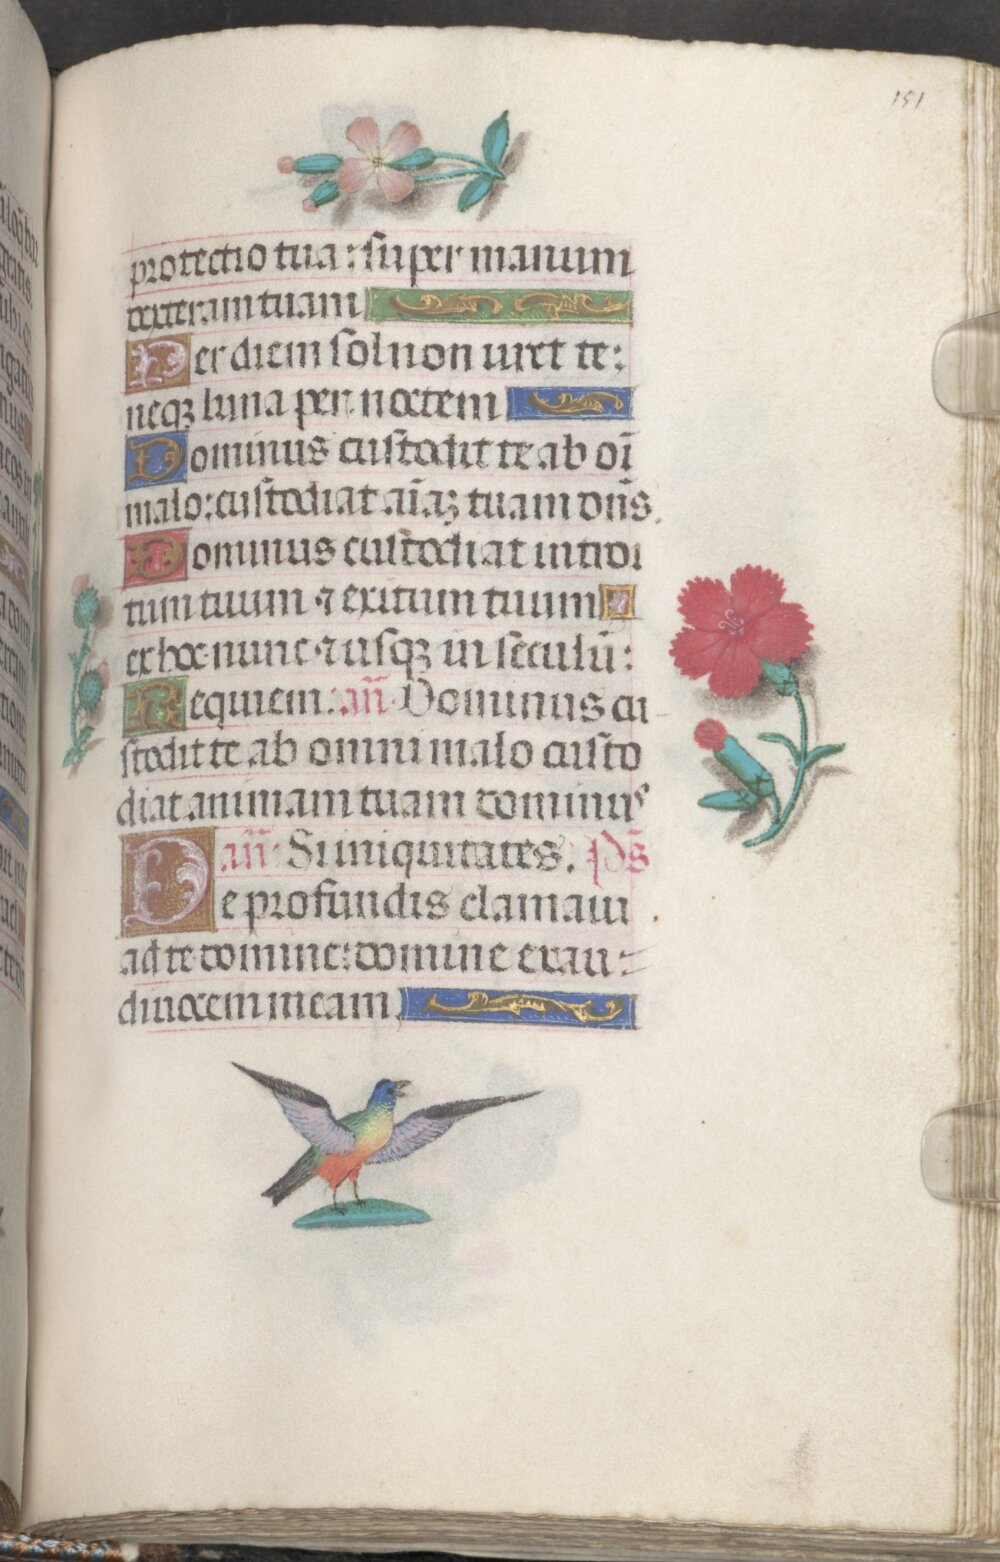 151
protectio tua : super manum
dexteram tuam
Per diem sol non uret te:
neqꝫ luna per noctem
Dominus custodit te ab oī
malo: custodiat aīaꝫ tuam dñs.
Dominus custodiat introi
tum tuum ⁊ exitum tuum
ex hoc nunc ⁊ usqꝫ in seculū:
Requiem. añ. Dominus cu
stodit te ab omni malo custo
diat animam tuam dominus
añ. Si iniquitates. Ps
De profundis clamaui
ad te domine: domine exau-
di uocem meam